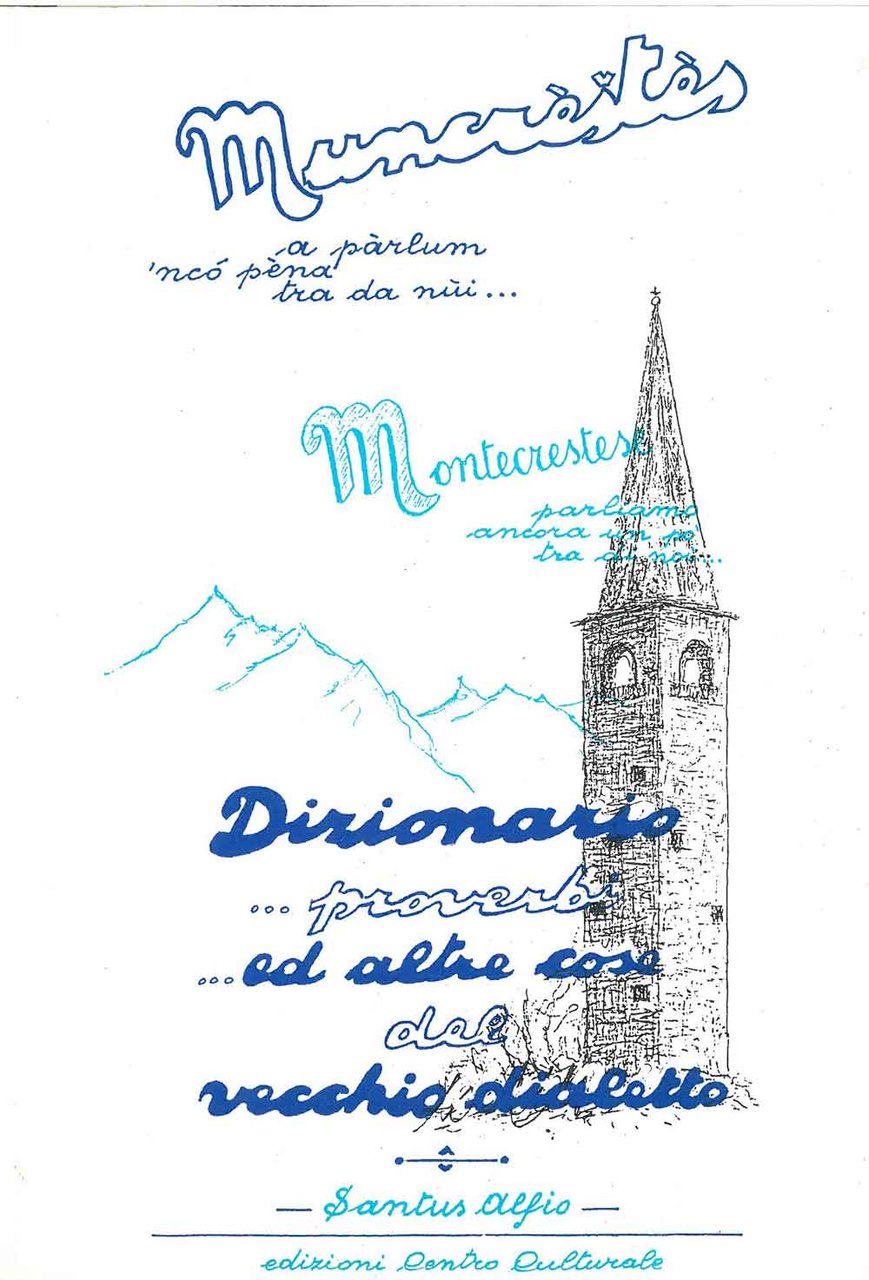 Muncrèštès
a pàrlum
'ncó pèna
tra da nùi...
Montecrestese
parliamo
ancora un pò
tra di noi...
Dizionario
... proverbi
... ed altre cose
del
vecchio dialetto
— Santus Alfio —
edizioni Centro Culturale